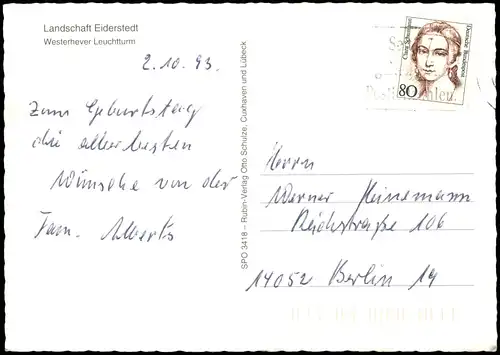 Landschaft Eiderstedt
Westerhever Leuchtturm
2.10.93.
Zum Geburtstag
die allerbesten
Wünsche von der
Fam. Alberts
SPO 3418 – Rubin-Verlag Otto Schulze, Cuxhaven und Lübeck
Clara Schumann
Deutsche Bundespost
80
Herrn
Werner Heinemann
Reichstraße 106
14052 Berlin 19